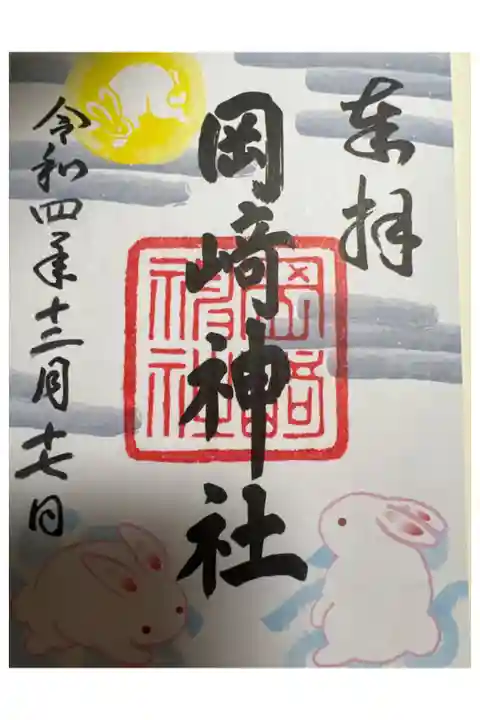 奉拝
岡﨑神社
岡﨑神社
令和四年十二月十七日